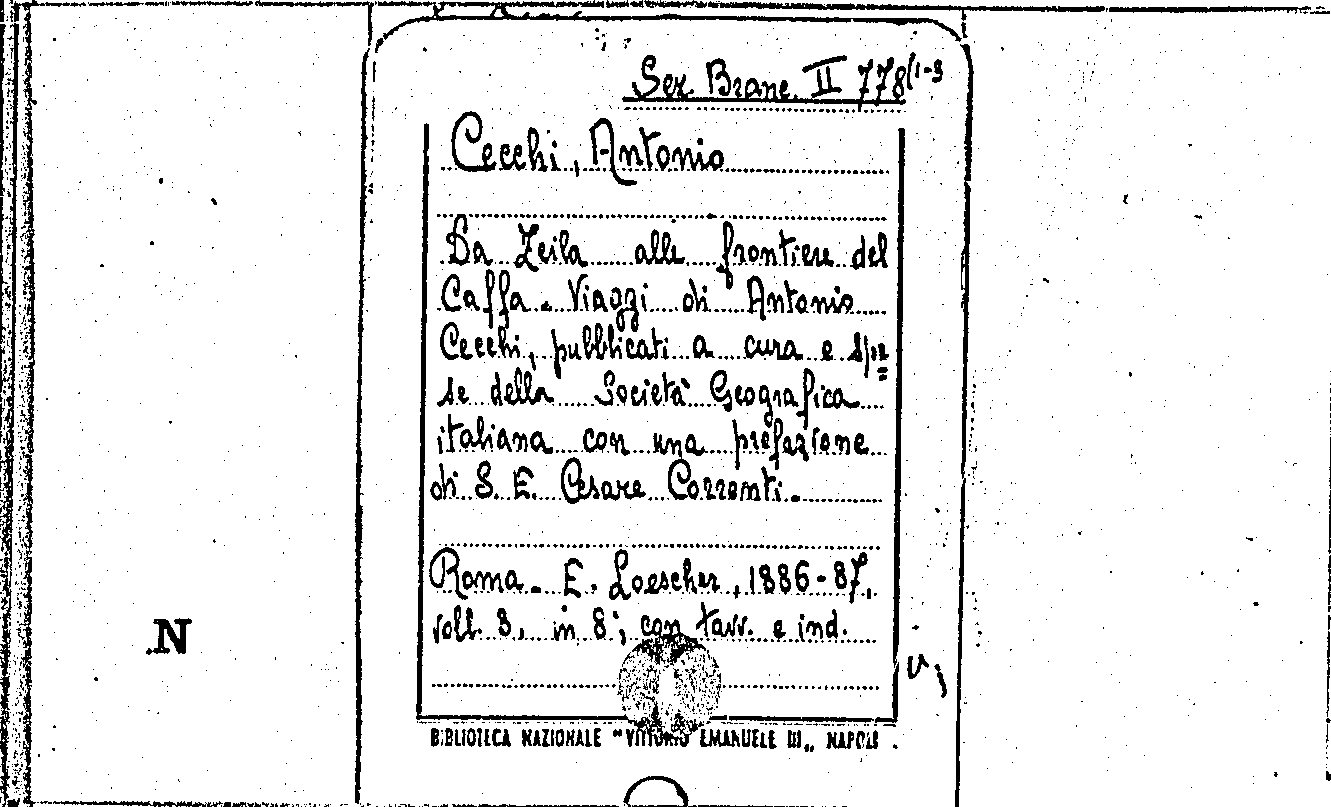 Sez. Branc. II 778(1-3
Cecchi, Antonio
Da Zeila alle frontiere del
Caffa. Viaggi di Antonio
Cecchi, pubblicati a cura e spe=
se della Società Geografica
italiana con una prefazione
di S. E. Cesare Correnti.
Roma. E. Loescher, 1886-87,
voll. 3, in 8°, con tavv. e ind.
N
BIBLIOTECA NAZIONALE "VITTORIO EMANUELE III„ NAPOLI